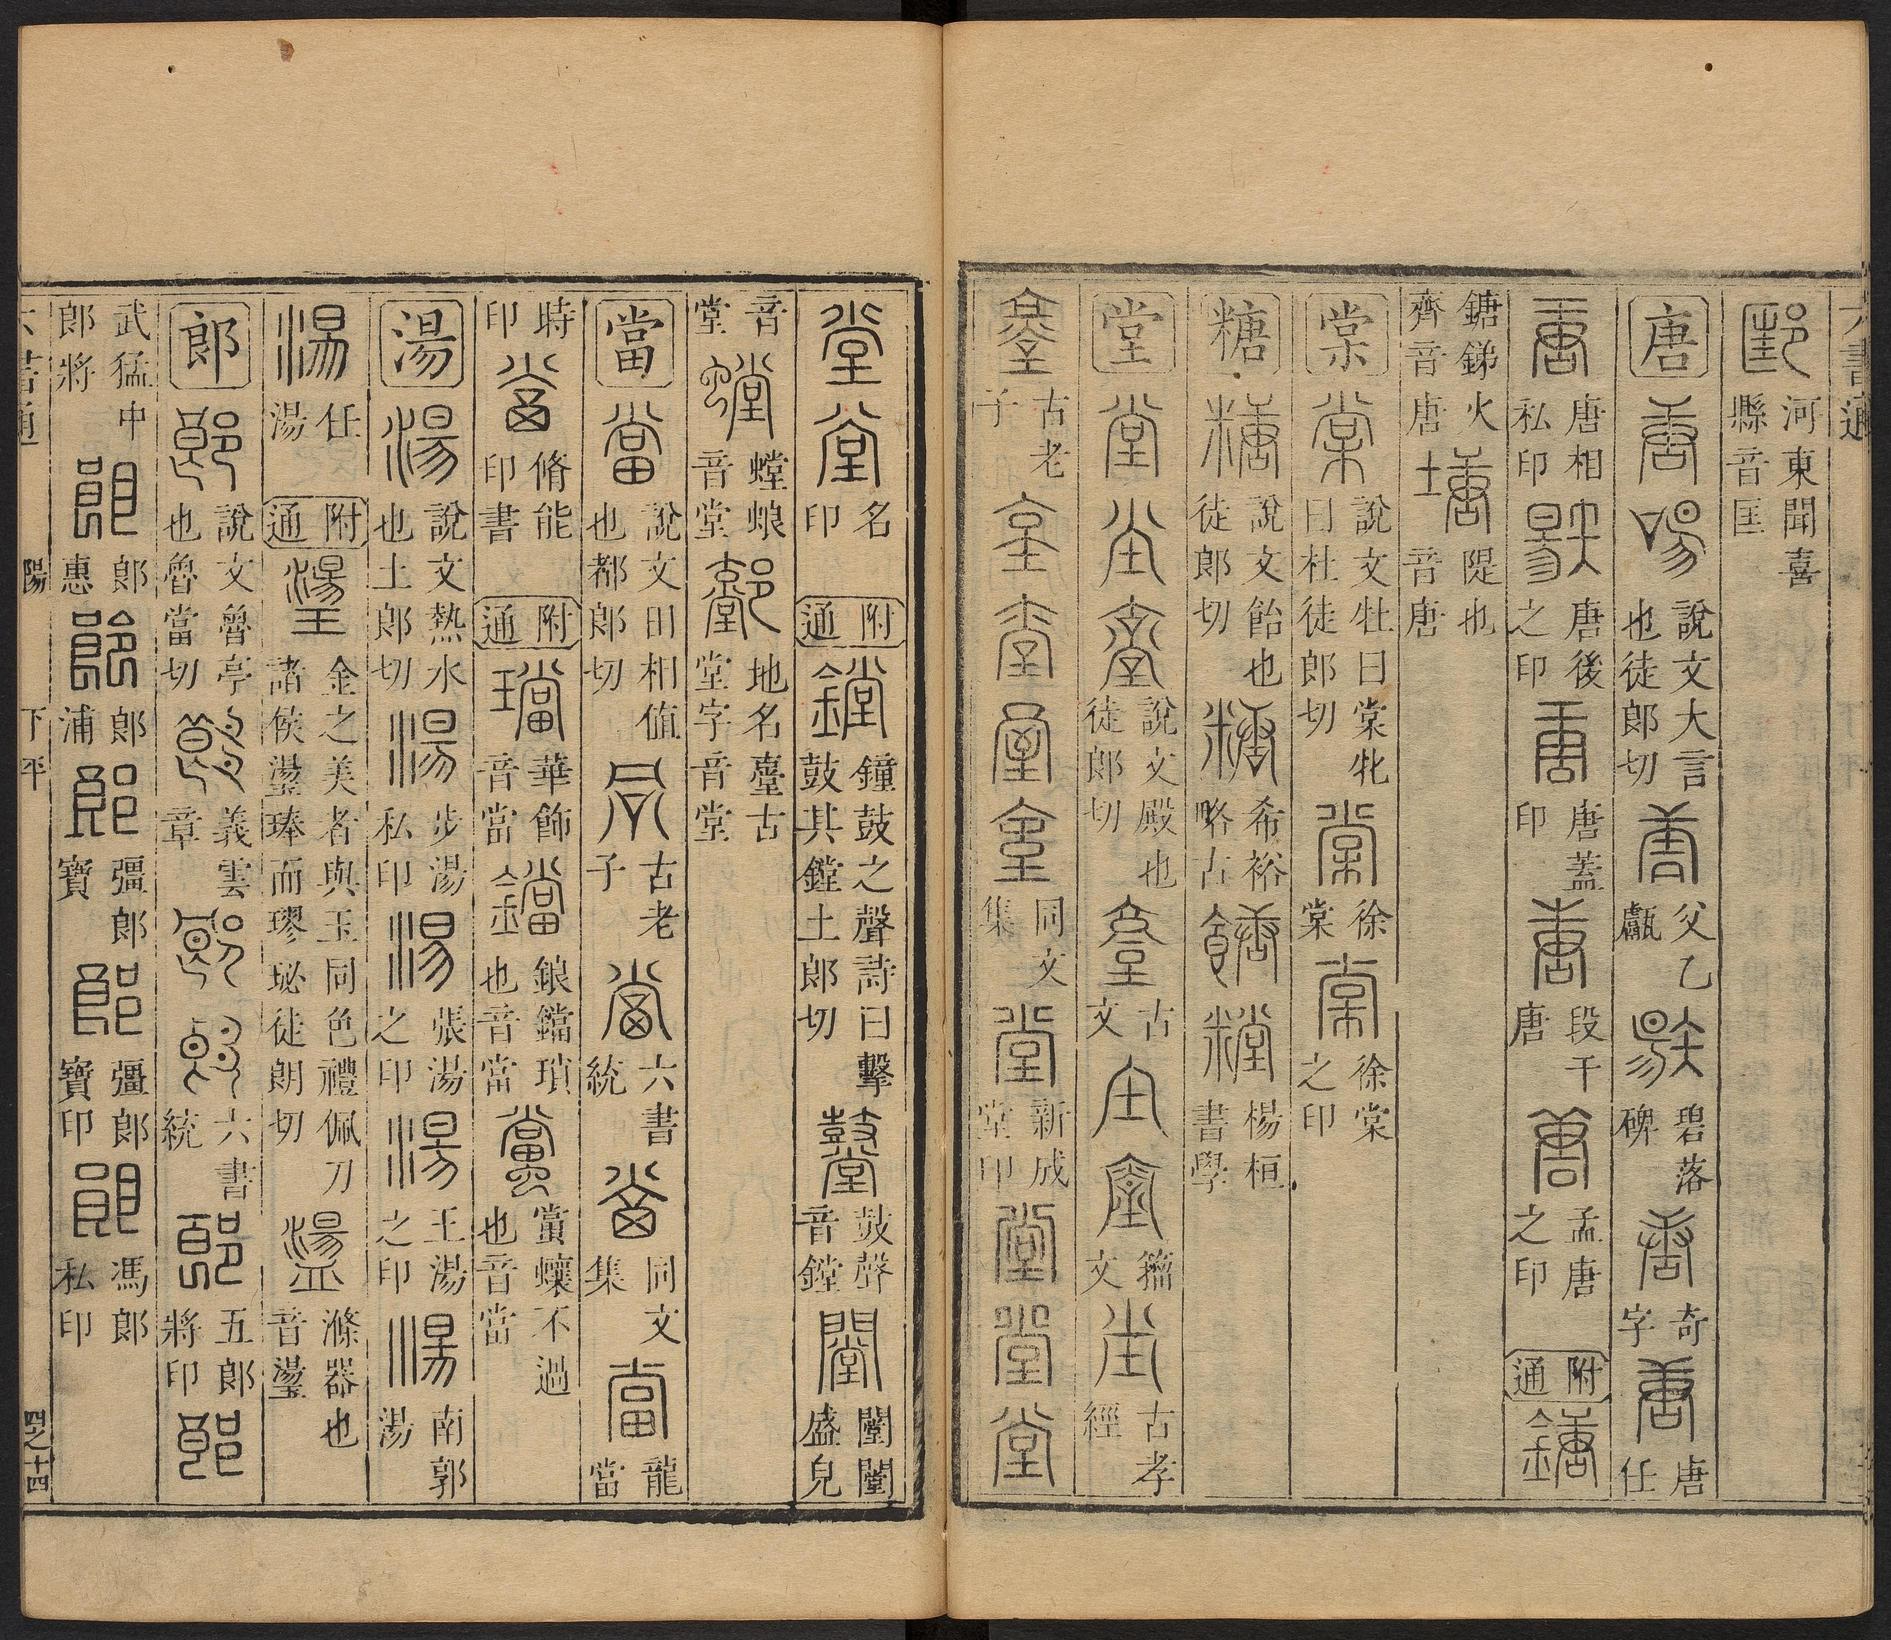 六書通
河東聞喜縣音匡
唐 說文大言也徒郎切 父乙甗 碧落碑 奇字 唐任
唐相私印 唐後之印 唐蓋印 段干唐 孟唐之印 附通
鎕銻火齊音唐 隄也音唐
棠 說文牡曰棠牝曰杜徒郎切 徐棠 徐棠之印
糖 說文飴也徒郎切 希裕略古 楊桓書學
堂 說文殿也徒郎切 古文 籀文 古孝經
古老子 同文集 新成堂印
名印 附通 鐘鼓之聲詩曰擊鼓其鏜土郎切 鼓聲音鏜 闛闛盛皃
音堂 螳蜋音堂 地名臺古堂字音堂
當 說文田相值也都郎切 古老子 六書統 同文集 龍當
時印 脩能印書 附通 華飾音當 鋃鐺瑣也音當 蟷蠰不過也音當
湯 說文熱水也土郎切 步湯私印 張湯之印 王湯之印 南郭湯
任湯 附通 金之美者與玉同色禮佩刀諸侯璗琫而璆珌徒朗切 滌器也音璗
郎 說文魯亭也魯當切 義雲章 六書統 五郎將印
武猛中郎將 郎惠 郎浦 彊郎寶 彊郎寶印 馮郎私印
六書通 陽 下平 四之十四